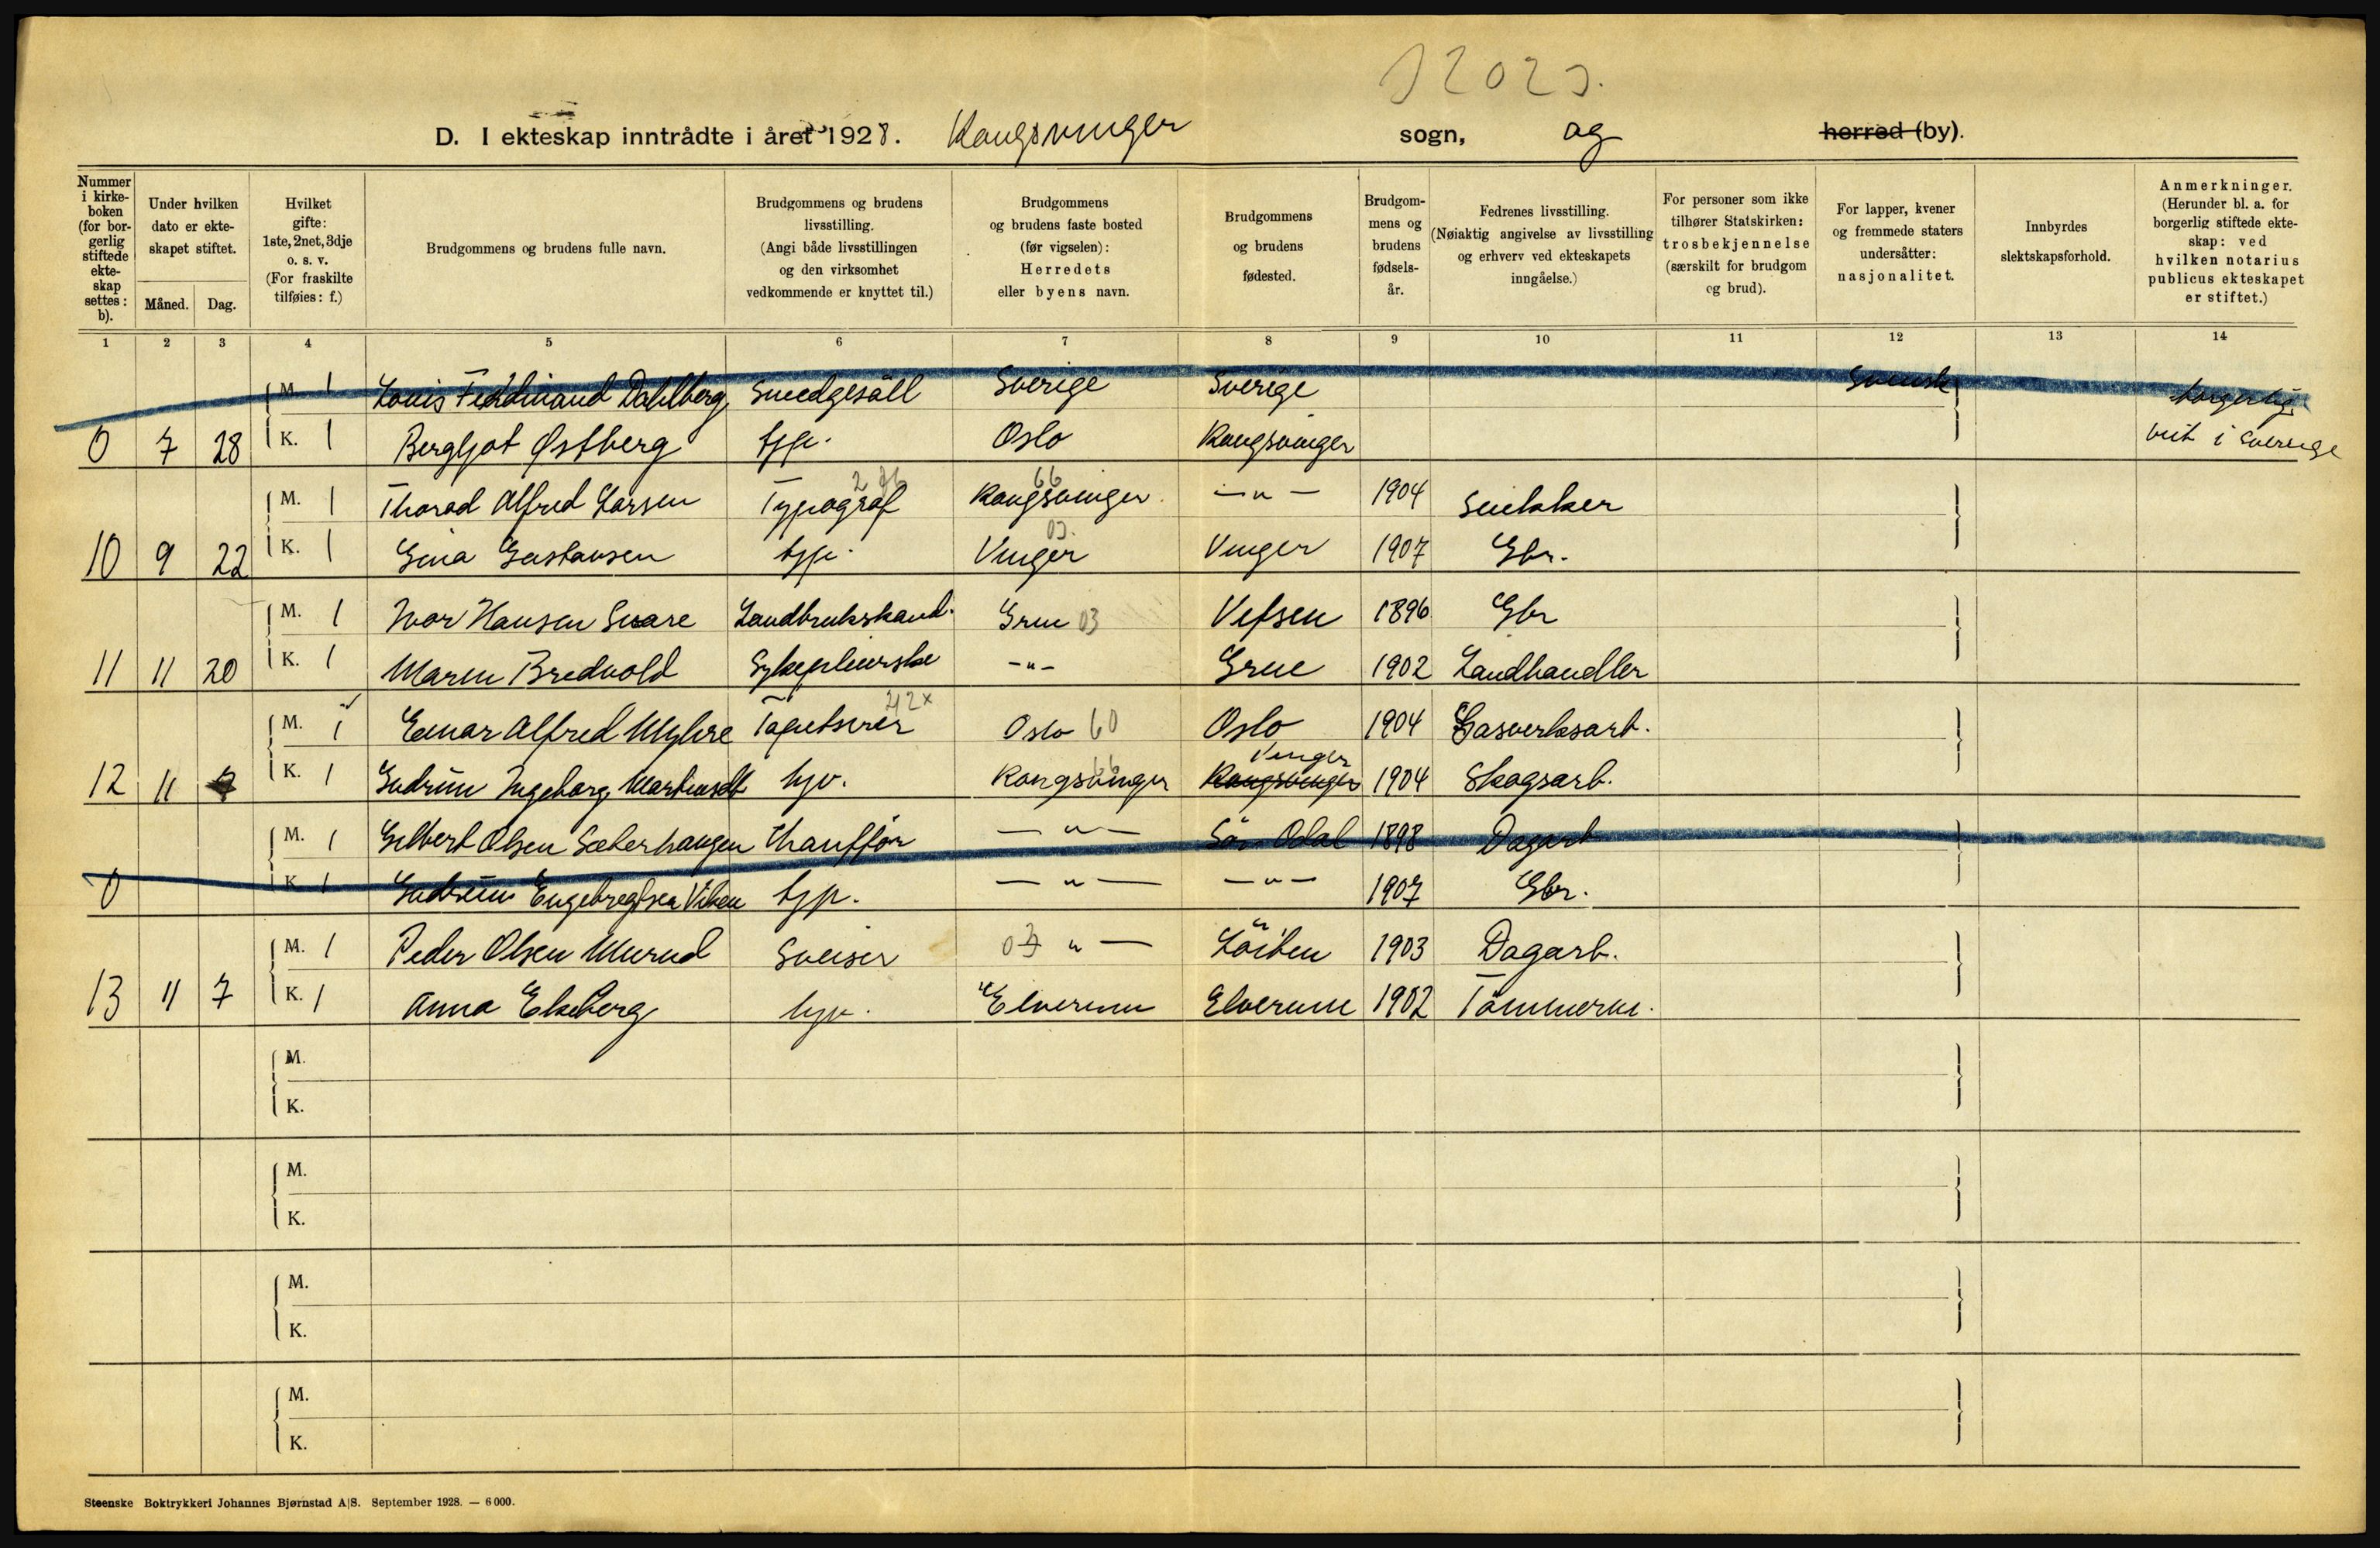 D. I ekteskap inntrådte i året 1928. Kongsvinger sogn, og herred (by).
Nummer i kirkeboken (for borgerlig stiftede ekteskap settes: b).
Under hvilken dato er ekteskapet stiftet.
Måned. Dag.
Hvilket gifte: 1ste, 2net, 3dje o. s. v. (For fraskilte tilføies: f.)
Brudgommens og brudens fulle navn.
Brudgommens og brudens livsstilling. (Angi både livsstillingen og den virksomhet vedkommende er knyttet til.)
Brudgommens og brudens faste bosted (før vigselen): Herredets eller byens navn.
Brudgommens og brudens fødested.
Brudgommens og brudens fødselsår.
Fedrenes livsstilling. (Nøiaktig angivelse av livsstilling og erhverv ved ekteskapets inngåelse.)
For personer som ikke tilhører Statskirken: trosbekjennelse (særskilt for brudgom og brud).
For lapper, kvener og fremmede staters undersåtter: nasjonalitet.
Innbyrdes slektskapsforhold.
Anmerkninger. (Herunder bl. a. for borgerlig stiftede ekteskap: ved hvilken notarius publicus ekteskapet er stiftet.)
1 2 3 4 5 6 7 8 9 10 11 12 13 14
M. 1 Louis Ferdinand Dahlberg Smedgesäll Sverige Sverige Svensk borgerlig
0 7 28 K. 1 Bergljot Østberg hjp. Oslo Kongsvinger viet i Sverige
M. 1 Thorad Alfred Larsen Typograf Kongsvinger 66 — " — 1904 Snekker
10 9 22 K. 1 Gina Gustavsen hjp. Vinger 03. Vinger 1907 Gbr.
M. 1 Ivar Hansen Snare Landbrukskand. Grue 03 Vefsen 1896 Gbr
11 11 20 K. 1 Maren Bredvold Sykepleierske - " - Grue 1902 Landhandler
M. 1 Einar Alfred Myhre Tapetserer 42x Oslo 60 Oslo 1904 Gasverksarb.
12 11 7 K. 1 Gudrun Ingeborg Martinsdt hjv. Kongsvinger Kongsvinger Vinger 1904 Skogsarb.
M. 1 Gilbert Olsen Sæterhaugen Chauffør — " — Sör Odal 1898 Dagarb
0 K. 1 Gudrun Engebregtsen Viken hjp. — " — — " — 1907 Gbr.
M. 1 Peder Olsen Murud Sveiser 03 " — Löiten 1903 Dagarb.
13 11 7 K. 1 Anna Ekeberg hjv. Elverum Elverum 1902 Tömmerm.
M.
K.
M.
K.
M.
K.
M.
K.
Steenske Boktrykkeri Johannes Bjørnstad A|S. September 1928. — 6 000.